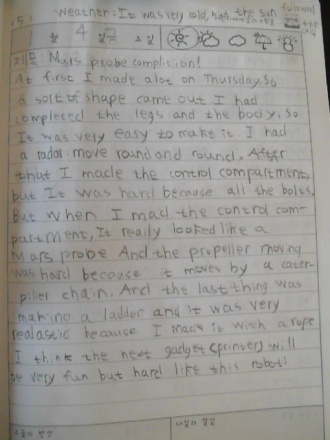 (5) Weather: It was very cold, but the sun
월 4 일 요일
제목: Mars probe complition!
At first I made alot on Thursday, So
a sort of shape came out I had
completed the legs and the body, So
It was very easy to make it. I had
a radar move round and round. After
that I made the control compartment,
but It was hard because all the bolts,
But when I mad the control com-
partment, It really looked like a
Mars probe And the propeller moving
was hard because it moves by a cater-
piller chain. And the last thing was
making a ladder and it was very
realastic because I made it with a rope
I think the next gadget (printer) will
be very fun but hard like this robot!